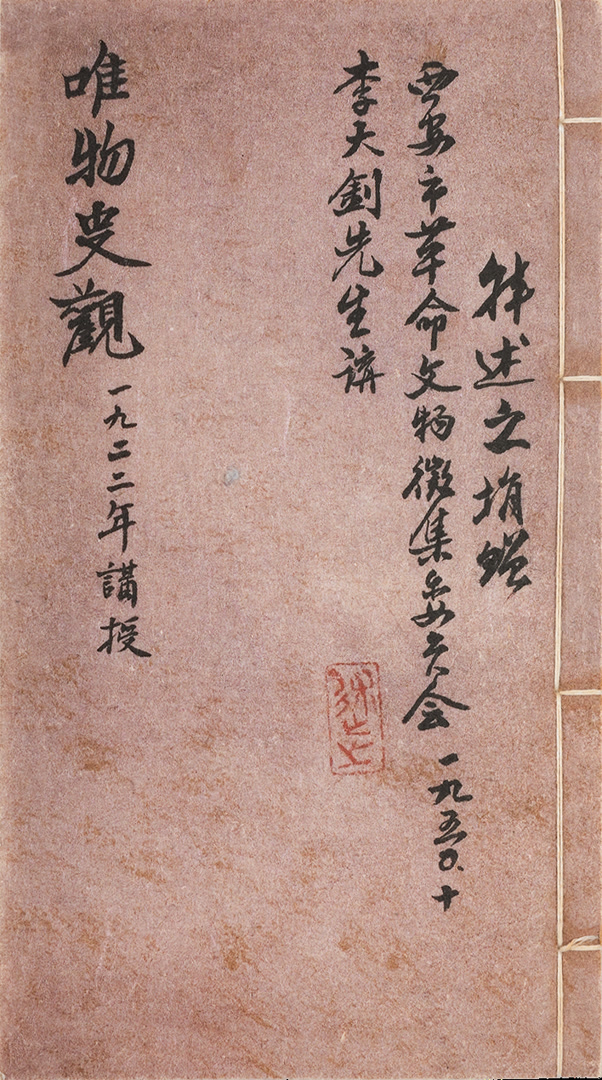 韩述之捐赠
西安市革命文物徵集委员会 一九五〇.十
李大釗先生講
述之
唯物史觀 一九二二年講授